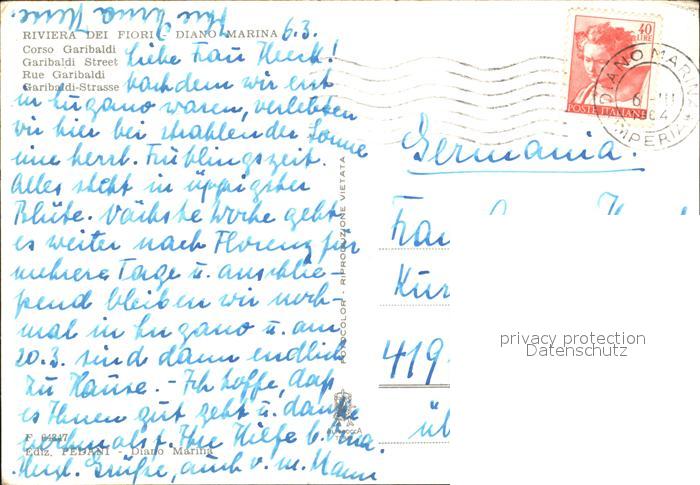 RIVIERA DEI FIORI - DIANO MARINA
Corso Garibaldi
Garibaldi Street
Rue Garibaldi
Garibaldi-Strasse
6.3.
Liebe Frau Heeck!
Nachdem wir erst
in Lugano waren, verlebten
wir hier bei strahlender Sonne
eine herrl. Frühlingszeit.
Alles steht in üppigster
Blüte. Nächste Woche geht
es weiter nach Florenz für
mehrere Tage u. anschlie-
ßend bleiben wir noch-
mal in Lugano u. am
20.3. sind dann endlich
zu Hause. - Ich hoffe, daß
es Ihnen gut geht u. danke
nochmals f. Ihre Hilfe b.
Herzl. Grüße, auch v. m. Mann
Ihre Erna
F 64247
Ediz. PEDANI - Diano Marina
FOTOCOLOR - RIPRODUZIONE VIETATA
40
LIRE
POSTE ITALIANE
DIANO MARINA
6-III
64
IMPERIA
Germania.
Frau
Kur
419
üb
privacy protection
Datenschutz